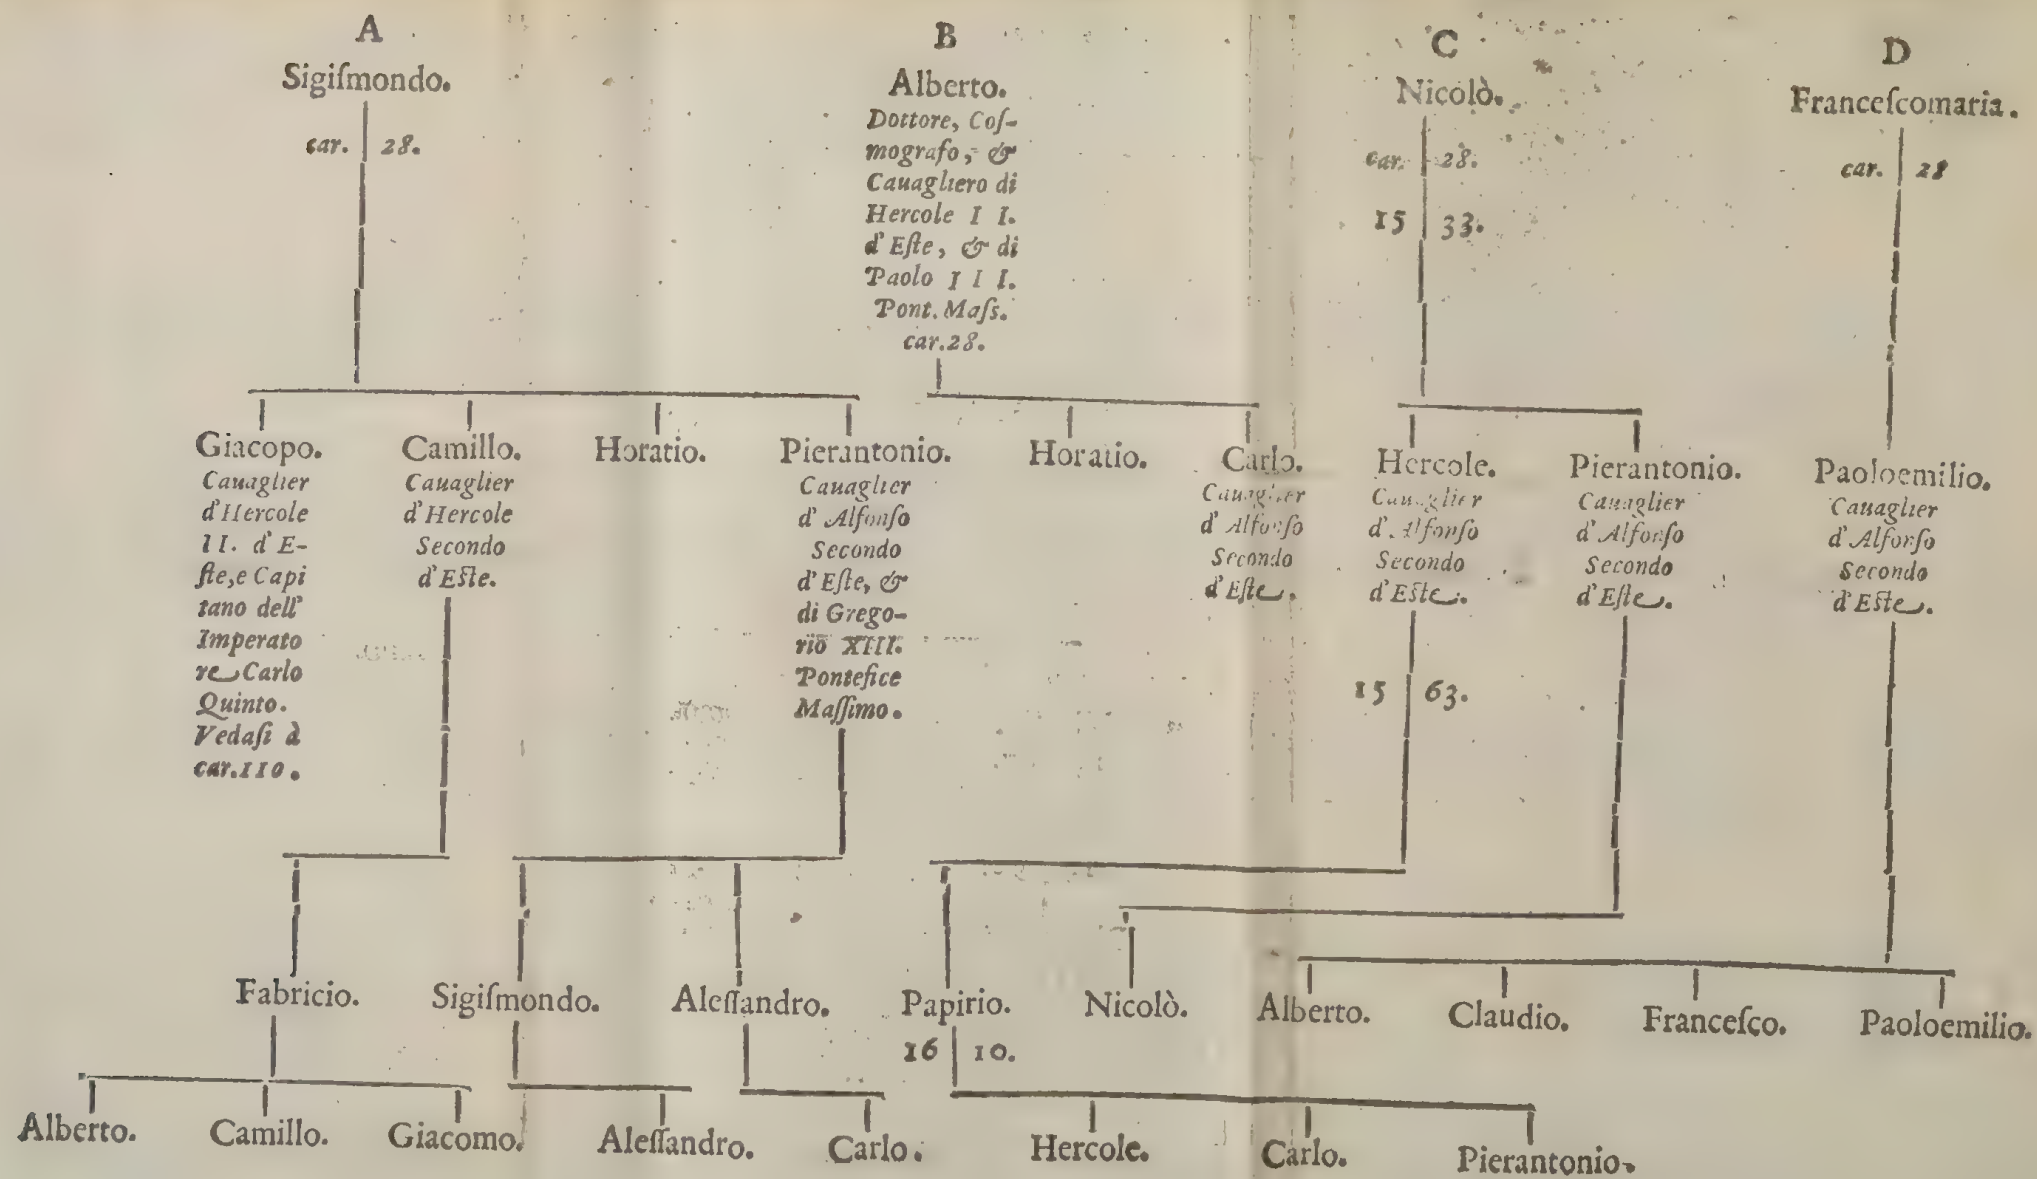 A
Sigiſmondo.
car. 28.
B
Alberto.
Dottore, Coſ-
mografo, &
Cauagliero di
Hercole I I.
d'Eſte, & di
Paolo I I I.
Pont. Maſs.
car.28.
C
Nicolò.
car. 28.
15 33.
D
Franceſcomaria.
car. 28
Giacopo.
Cauaglier
d'Hercole
II. d'E-
ſte,e Capi
tano dell'
Imperato
re Carlo
Quinto.
Vedaſi à
car.110.
Camillo.
Cauaglier
d'Hercole
Secondo
d'Eſte.
Horatio.
Pierantonio.
Cauaglier
d'Alfonſo
Secondo
d'Eſte, &
di Grego-
rio XIII.
Pontefice
Maſſimo.
Horatio.
Carlo.
Cauaglier
d'Alfonſo
Secondo
d'Eſte.
Hercole.
Cauaglier
d'Alfonſo
Secondo
d'Eſte.
15 63.
Pierantonio.
Cauaglier
d'Alfonſo
Secondo
d'Eſte.
Paoloemilio.
Cauaglier
d'Alfonſo
Secondo
d'Eſte.
Fabricio.
Sigiſmondo.
Aleſſandro.
Papirio.
16 10.
Nicolò.
Alberto.
Claudio.
Franceſco.
Paoloemilio.
Alberto.
Camillo.
Giacomo.
Aleſſandro.
Carlo.
Hercole.
Carlo.
Pierantonio.